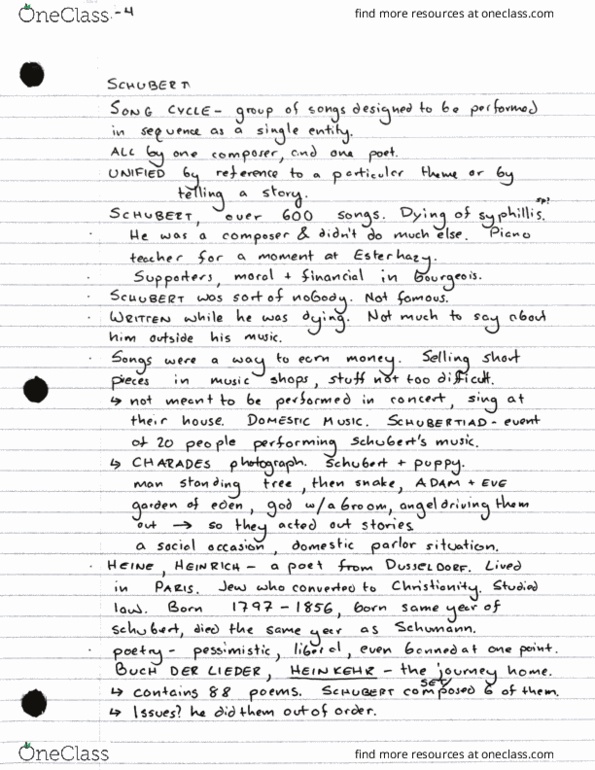 OneClass -4
find more resources at oneclass.com
SCHUBERT
SONG CYCLE - group of songs designed to be performed
in sequence as a single entity.
ALL by one composer, and one poet.
UNIFIED by reference to a particular theme or by
telling a story.
sp?
SCHUBERT, over 600 songs. Dying of syphillis.
· He was a composer & didn't do much else. Piano
teacher for a moment at Esterhazy.
· Supporters, moral + financial in bourgeois.
· SCHUBERT was sort of nobody. Not famous.
· WRITTEN while he was dying. Not much to say about
him outside his music.
· Songs were a way to earn money. Selling short
pieces in music shops, stuff not too difficult.
↳ not meant to be performed in concert, sing at
their house. DOMESTIC MUSIC. SCHUBERTIAD - event
of 20 people performing Schubert's music.
↳ CHARADES photograph. Schubert + puppy.
man standing tree, then snake, ADAM + EVE
garden of eden, god w/ a broom, angel driving them
out → so they acted out stories
a social occasion, domestic parlor situation.
· HEINE, HEINRICH - a poet from DUSSELDORF. Lived
in PARIS. Jew who converted to Christianity. Studied
law. Born 1797 - 1856, born same year of
schubert, died the same year as Schumann.
· poetry - pessimistic, liberal, even banned at one point.
BUCH DER LIEDER, HEINKEHR - the journey home.
SET
↳ contains 88 poems. SCHUBERT composed 6 of them.
↳ Issues? he did them out of order.
OneClass
find more resources at oneclass.com